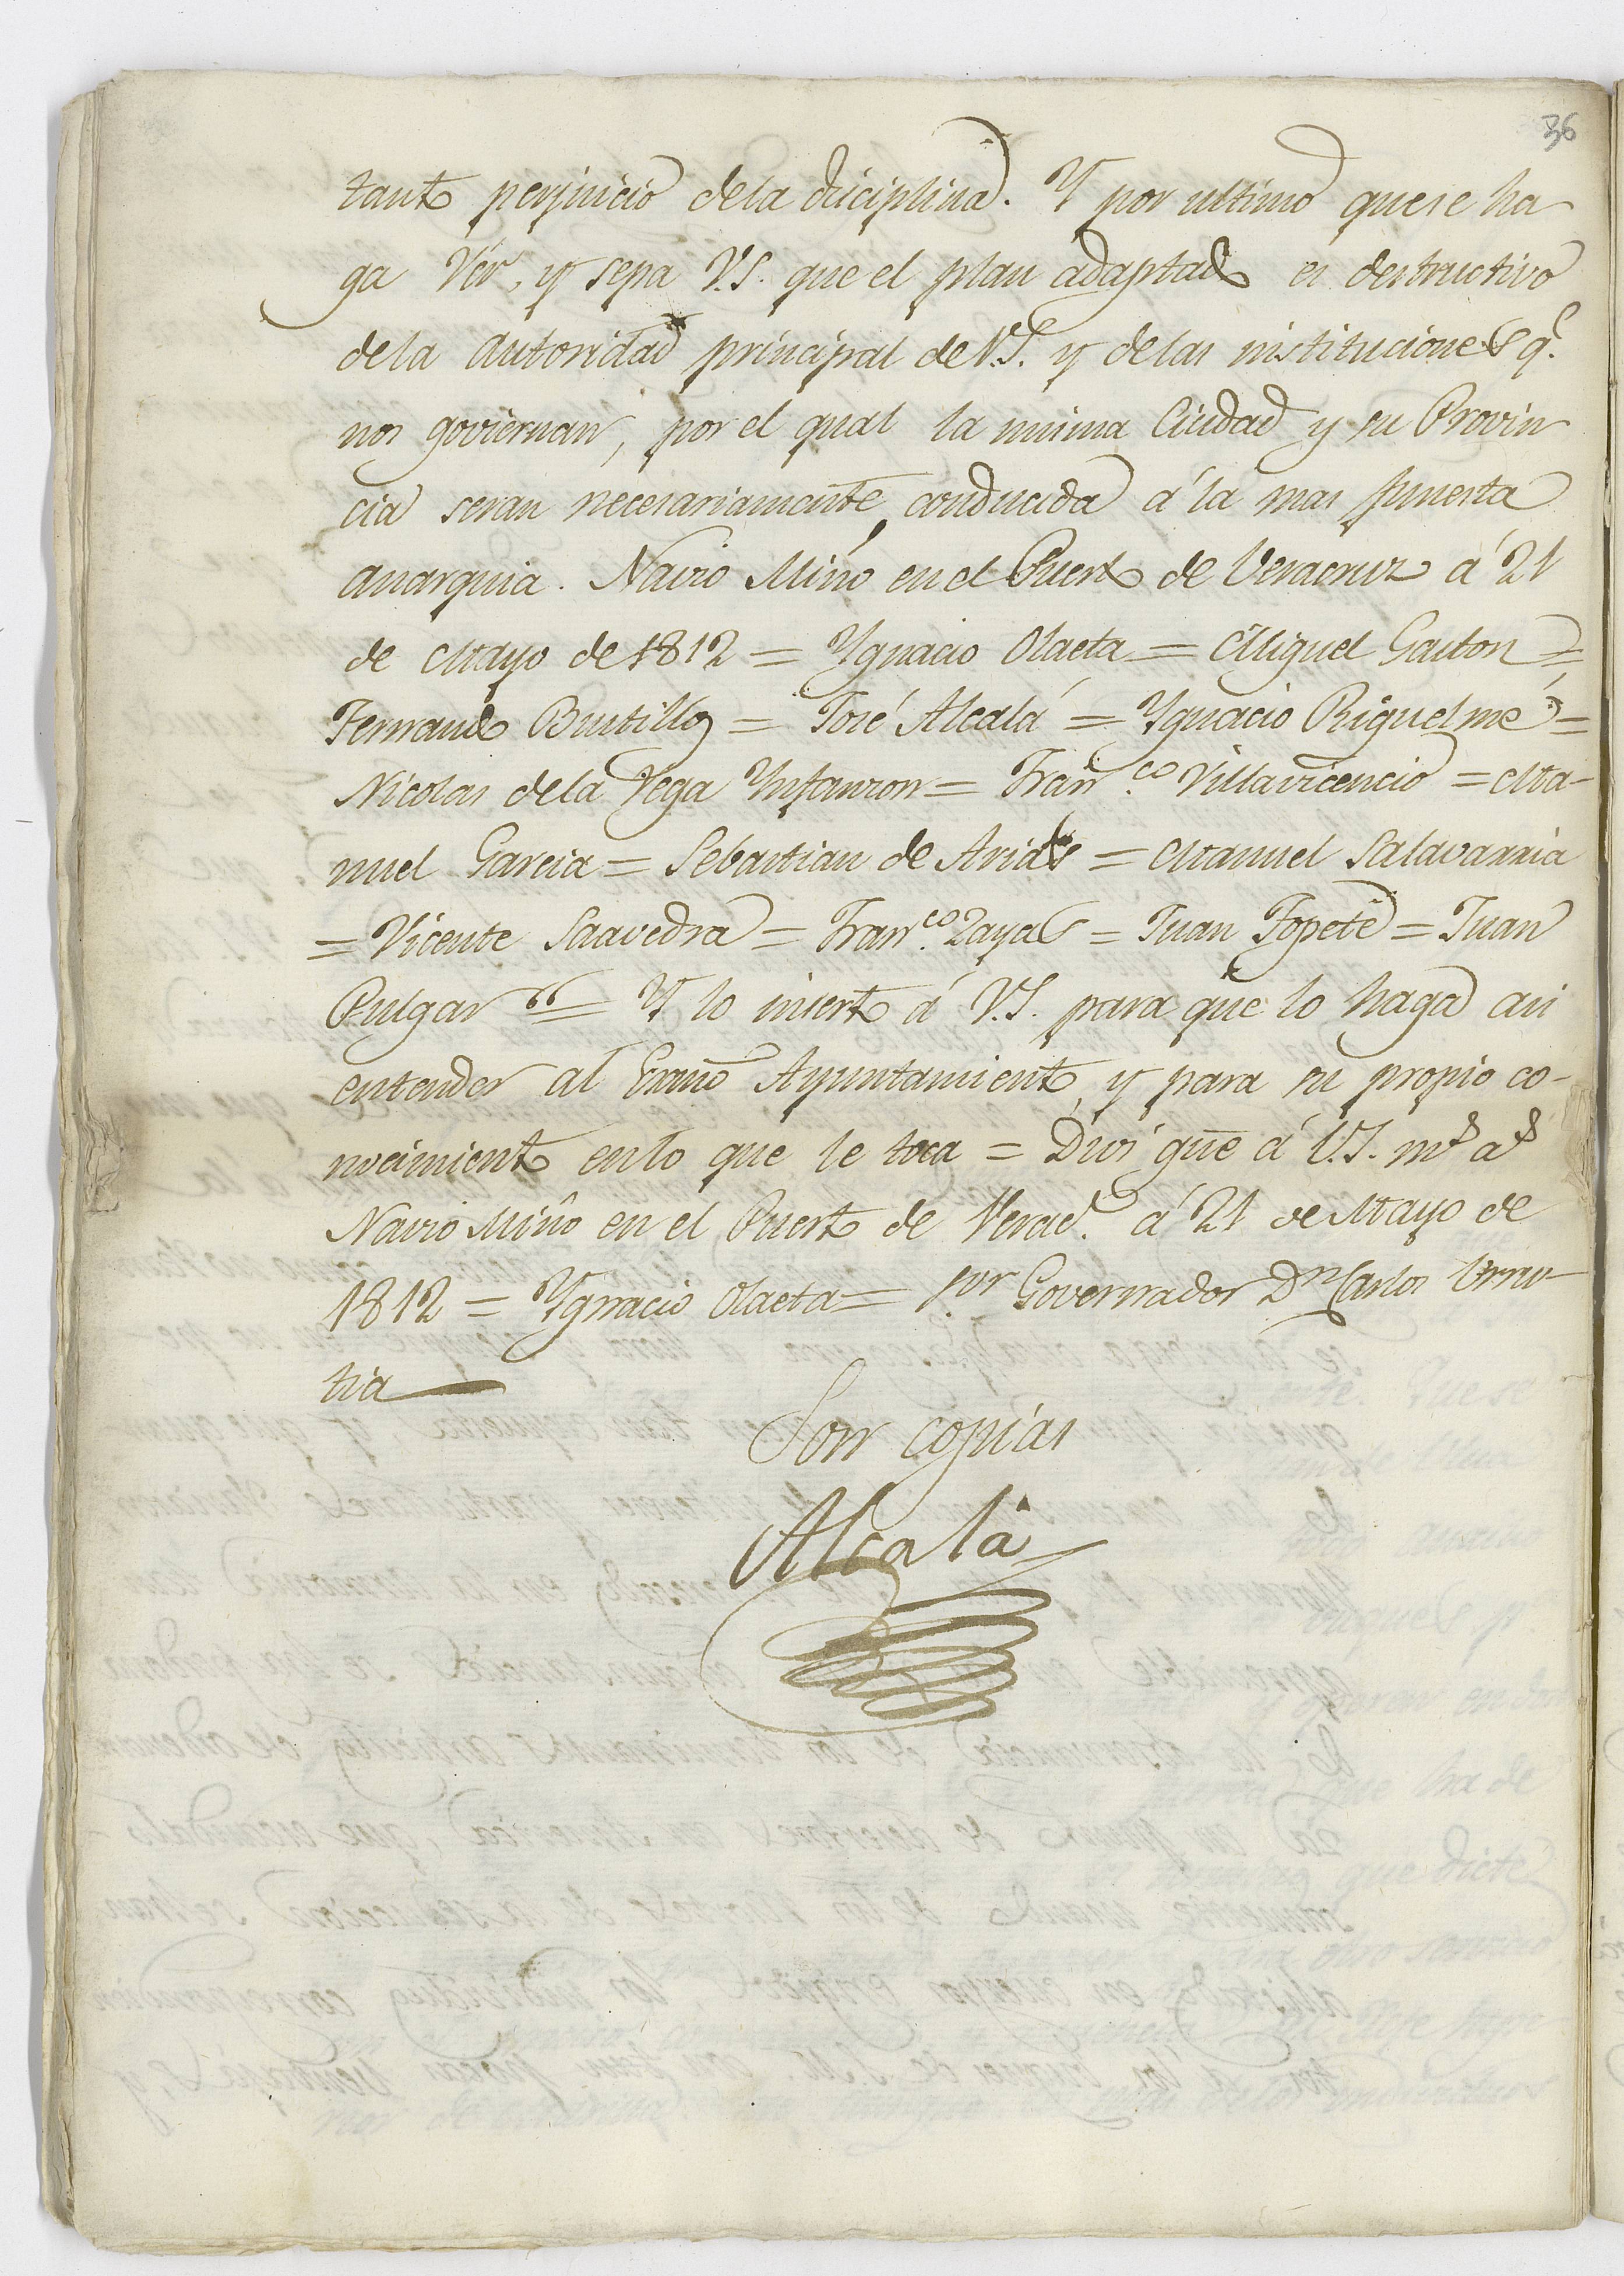 36
tanto perjuicio dela disciplina. Y por ultimo quese ha
ga Vér, y sepa V.S. que el plan adaptado es destructivo
dela autoridad principal de V.S. y delas instituciones q.e
nos goviernan, por el qual la misma Ciudad y su Provin
cia seran necesariamente conducida á la mas funesta
anarquia. Navio Miño en el Puerto de Veracruz á 21
de Mayo de 1812 = Ygnacio Olaeta = Miguel Gaston =
Fernando Bustillos = José Alcalá = Ygnacio Riguelmé =
Nicolas dela Vega Ynfanzon = Fran.co Villavicencio = Ma-
nuel Garcia = Sebastian de Arias = Manuel Salavarria
= Vicente Saavedra = Fran.co Zayas = Juan Topete = Juan
Pulgar = Y lo inserto á V.S. para que lo haga asi
entender al Exmo Ayuntamiento, y para su propio co-
nocimiento en lo que le toca = Dios gue á V.S. ms as
Navio Miño en el Puerto de Verac.z á 21 de Mayo de
1812 = Ygnacio Olaeta = S.or Governador Dn Carlos Urru-
tia
Son copias
Alcalá